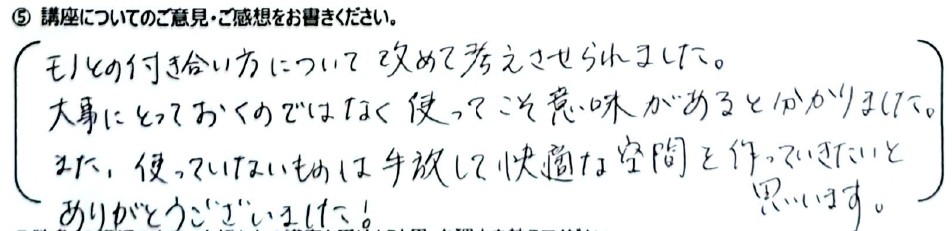 ⑤ 講座についてのご意見・ご感想をお書きください。
モノとの付き合い方について改めて考えさせられました。
大事にとっておくのではなく使ってこそ意味があると分かりました。
また、使っていないものは手放して快適な空間を作っていきたいと
思います。
ありがとうございました!